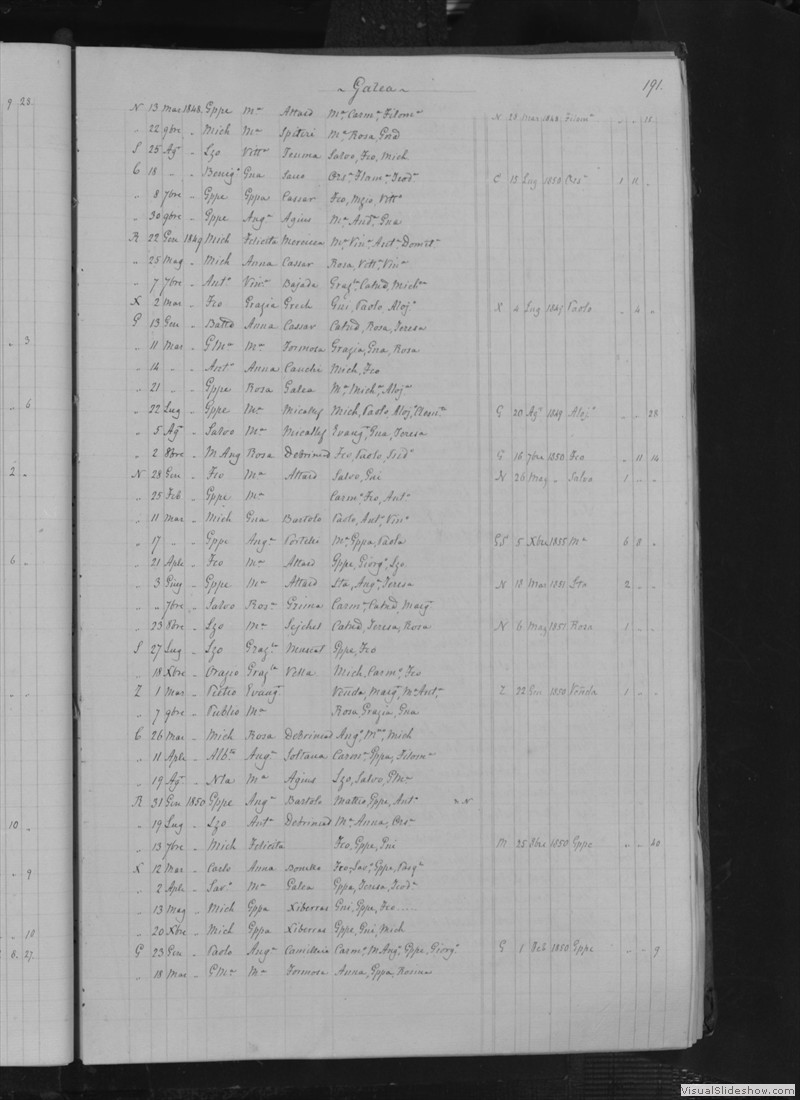 ~ Galea ~ 191.
9 23.
N 13 Mar 1848 Gppe Ma Attard Ma Carma Filoma N 28 Mar 1848 Filoma .. .. 15
.. 22 9bre .. Mich Ma Spiteri Ma Rosa
S 25 Agto .. Lzo Vitta Teuma Salvo, Fco, Mich
C 18 .. .. Gna C 15 Lug 1850 Orsa 1 11 ..
.. 8 7bre .. Gppe Gppa Cassar Fco, Mzio, Vitta
.. 30 9bre .. Gppe Anga Agius Ma Anta Gna
R 22 Gen 1849 Mich Felicita Ma Vina Anta
.. 25 Mag .. Mich Anna Cassar Rosa, Vitta Vina
.. 7 7bre .. Anto Vina Bajada Graza Catnd, Micha
X 2 Mar .. Fco Grazia Grech Gni, Paolo, Aloja X 4 Lug 1849 Paolo .. 4 ..
G 13 Gen .. Anna Cassar Catnd, Rosa, Teresa
3
.. 11 Mar .. GMa Ma Formosa Grazia, Gna, Rosa
.. 14 .. .. Anto Anna Cauchi Mich, Fco
.. 21 .. .. Gppe Rosa Galea Ma Micha Aloja
.. 6
.. 22 Lug .. Gppe Ma Micallef Mich, Paolo, Aloja G 20 Ago 1849 Aloja .. .. 28
.. 5 Ago .. Salvo Ma Micallef Evanga Gna, Teresa
.. 2 8bre .. M Ang Rosa Debrincad Fco, Paolo G 16 7bre 1850 Fco .. 11 14
2 ..
N 28 Gen .. Fco Ma Attard Salvo, Gni N 26 Mag .. Salvo 1 .. ..
.. 25 Feb .. Gppe Ma Carma Fco, Anto
.. 11 Mar .. Mich Gna Bartolo Paolo, Anta Vina
.. 17 .. .. Gppe Anga Portelli Ma Gppa, Paola 5 Xbre 1855 Ma 6 8 ..
6 ..
.. 21 Aple .. Fco Ma Attard Gppe, Giorgo Lzo
.. 3 Giug .. Gppe Ma Attard Anga Teresa N 18 Mar 1851 2 .. ..
.. .. 7bre .. Salvo Rosa Grima Carma Catnd
.. 23 8bre .. Lzo Ma Sejchel Catnd, Teresa, Rosa N 6 Mag 1851 Rosa 1 .. ..
S 27 Lug .. Lzo Graza Muscat Gppe, Fco
.. 18 Xbre .. Orazio Graza Vella Mich, Carma Fco
Z 1 Mar .. Pietro Evanga Ma Anta Z 22 Gen 1850 1 .. ..
.. 7 9bre .. Publio Ma Rosa, Grazia, Gna
C 26 Mar .. Mich Rosa Debrincad Anga Ma Mich
.. 11 Aple .. Anga Soltana Carma Gppa, Filoma
.. 19 Ago .. Nla Ma Agius Lzo, Salvo, GMa
R 31 Gen 1850 Gppe Anga Bartolo Matteo, Gppe, Anto x N
10 ..
.. 19 Lug .. Lzo Anta Debrincad Ma Anna, Orsa
.. 13 7bre .. Mich Felicita Fco, Gppe, Gni M 25 8bre 1850 Gppe .. .. 40
.. 9
X 12 Mar .. Carlo Anna Bonella Fco, Gppa
.. 2 Aple .. Sava Ma Galea Gppa, Teresa
.. 13 Mag .. Mich Gppa Xiberras Gni, Gppe, Fco
.. 10
.. 20 Xbre .. Mich Gppa Xiberras Gppe, Gni, Mich
6. 27.
G 23 Gen .. Paolo Anga Camilleri Carma M Anga Gppe, Giorgo G 1 Feb 1850 Gppe .. .. 9
.. 18 Mar .. GMa Ma Formosa Anna, Gppa, Rosina
VisualSlideshow.com